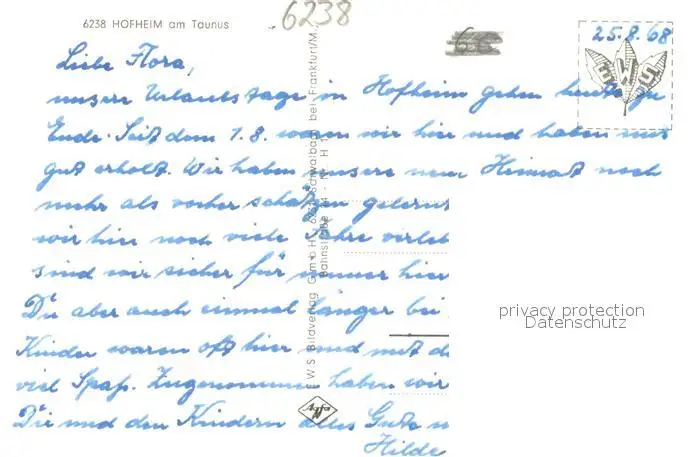 6238 HOFHEIM am Taunus
6238
60
25.8.68
EWS
Liebe Flora,
unsere Urlaubstage in Hofheim gehen heute zu
Ende. Seit dem 1.8. waren wir hier und haben uns
gut erholt. Wir haben unsere neue Heimat noch
mehr als vorher schätzen gelernt
wir hier noch viele Jahre verleb
sind wir sicher für immer hier
Du aber auch einmal länger bei
Kinder waren oft hier und mit d
viel Spaß. Zugenommen haben wir
Dir und den Kindern alles Gute
Hilde
EWS Bildverlag GmbH 6232 Schwalbach bei Frankfurt/M.
Bahnstraße
Agfa
privacy protection
Datenschutz